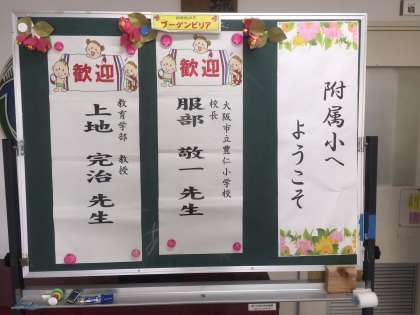 ブーゲンビリア
附属小へ
ようこそ
歓迎
大阪市立豊仁小学校
校長
服部 敬一 先生
歓迎
教育学部 教授
上地 完治 先生